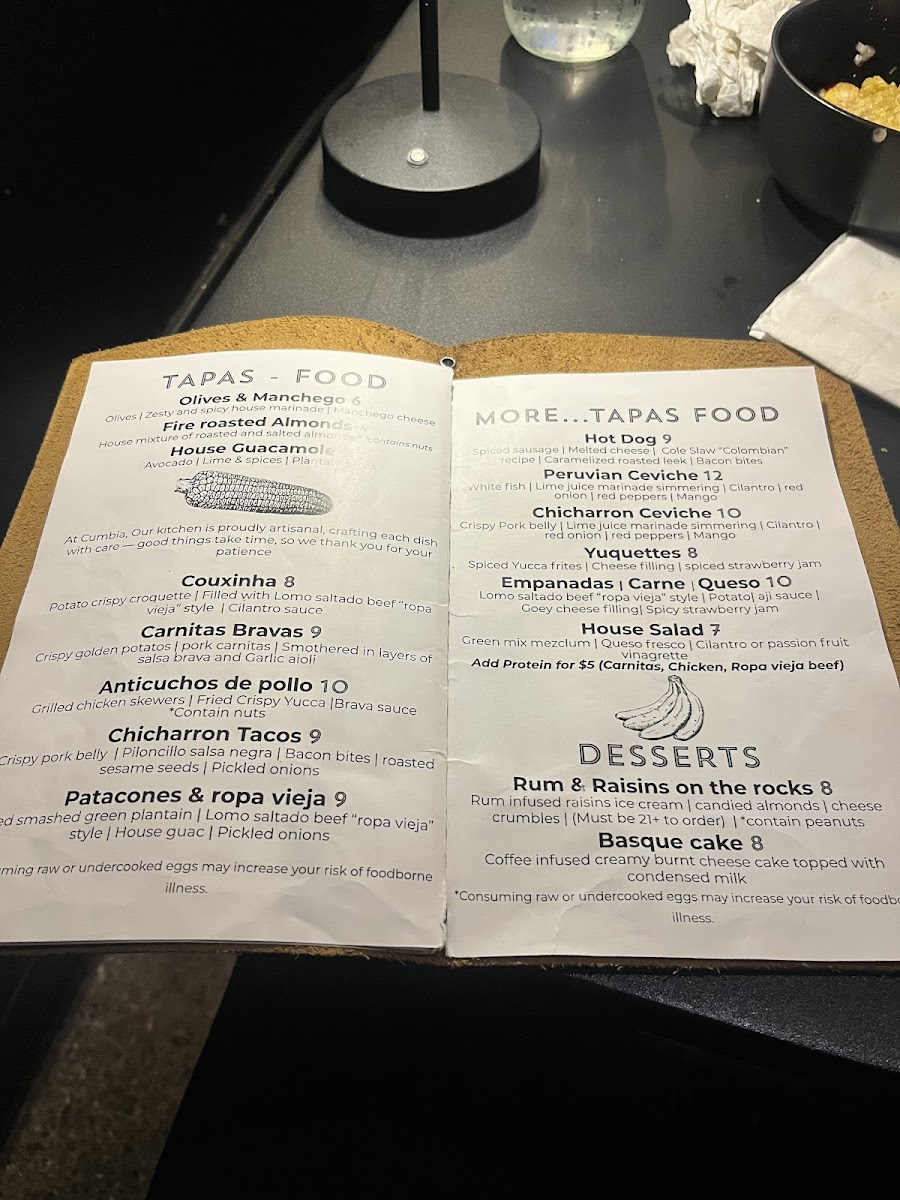 TAPAS - FOOD
Olives & Manchego 6
Olives | Zesty and spicy house marinade | Manchego cheese
Fire roasted Almonds
House mixture of roasted and salted almonds *contains nuts
House Guacamole
Avocado | Lime & spices |
At Cumbia, Our kitchen is proudly artisanal, crafting each dish
with care — good things take time, so we thank you for your
patience
Couxinha 8
Potato crispy croquette | Filled with Lomo saltado beef "ropa
vieja" style | Cilantro sauce
Carnitas Bravas 9
Crispy golden potatos | pork carnitas | Smothered in layers of
salsa brava and Garlic aioli
Anticuchos de pollo 10
Grilled chicken skewers | Fried Crispy Yucca |Brava sauce
*Contain nuts
Chicharron Tacos 9
Crispy pork belly | Piloncillo salsa negra | Bacon bites | roasted
sesame seeds | Pickled onions
Patacones & ropa vieja 9
smashed green plantain | Lomo saltado beef "ropa vieja"
style | House guac | Pickled onions
raw or undercooked eggs may increase your risk of foodborne
illness.
MORE...TAPAS FOOD
Hot Dog 9
Spiced sausage | Melted cheese | Cole Slaw "Colombian"
recipe | Caramelized roasted leek | Bacon bites
Peruvian Ceviche 12
White fish | Lime juice marinade simmering | Cilantro | red
onion | red peppers | Mango
Chicharron Ceviche 10
Crispy Pork belly | Lime juice marinade simmering | Cilantro |
red onion | red peppers | Mango
Yuquettes 8
Spiced Yucca frites | Cheese filling | spiced strawberry jam
Empanadas | Carne | Queso 10
Lomo saltado beef "ropa vieja" style | Potato| aji sauce |
Goey cheese filling| Spicy strawberry jam
House Salad 7
Green mix mezclum | Queso fresco | Cilantro or passion fruit
vinagrette
Add Protein for $5 (Carnitas, Chicken, Ropa vieja beef)
DESSERTS
Rum & Raisins on the rocks 8
Rum infused raisins ice cream | candied almonds | cheese
crumbles | (Must be 21+ to order) | *contain peanuts
Basque cake 8
Coffee infused creamy burnt cheese cake topped with
condensed milk
*Consuming raw or undercooked eggs may increase your risk of
illness.